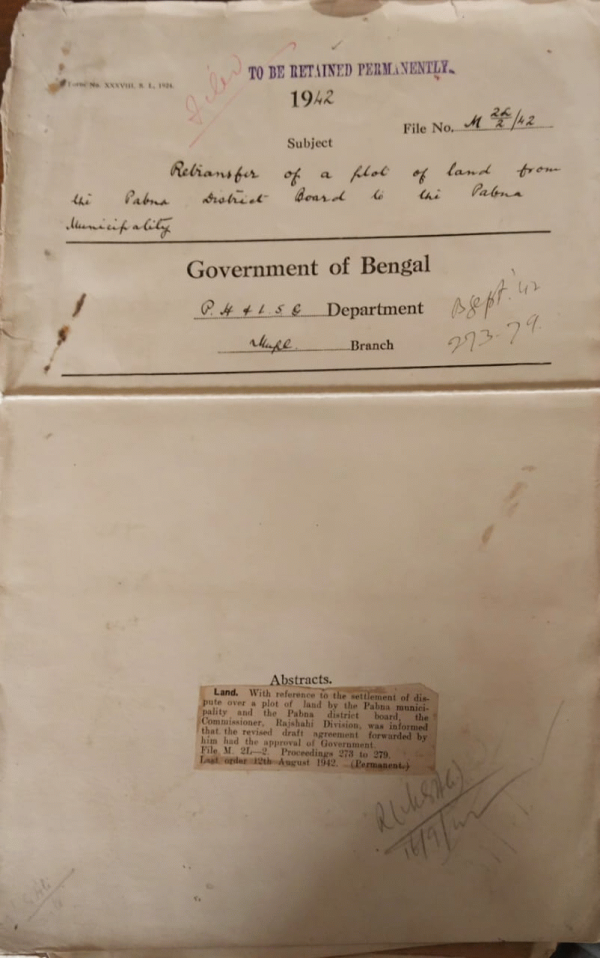 Form No. XXXVIII, S. L., 1924.
Filed
TO BE RETAINED PERMANENTLY.
1942
File No. M 2L/2/42
Subject
Retransfer of a plot of land from
the Pabna District Board to the Pabna
Municipality
Government of Bengal
P. H & L. S. G Department
Branch
Sept. '42
273-79.
Abstracts.
Land. With reference to the settlement of dis-
pute over a plot of land by the Pabna munici-
pality and the Pabna district board, the
Commissioner, Rajshahi Division, was informed
that the revised draft agreement forwarded by
him had the approval of Government.
File M. 2L—2. Proceedings 273 to 279.
Last order 12th August 1942. (Permanent.)